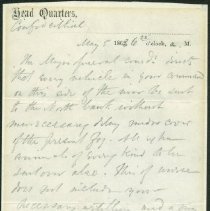 Head Quarters,
Confidential
May 5 1863 6 o'clock, a. M.
The Major General comd'g directs
that every vehicle in your command
on this side of the river be sent
to the North bank without
unnecessary delay under cover
of the present fog. All other
animals of every kind to be
sent over also. This of course
does not include your
necessary artillery and a few